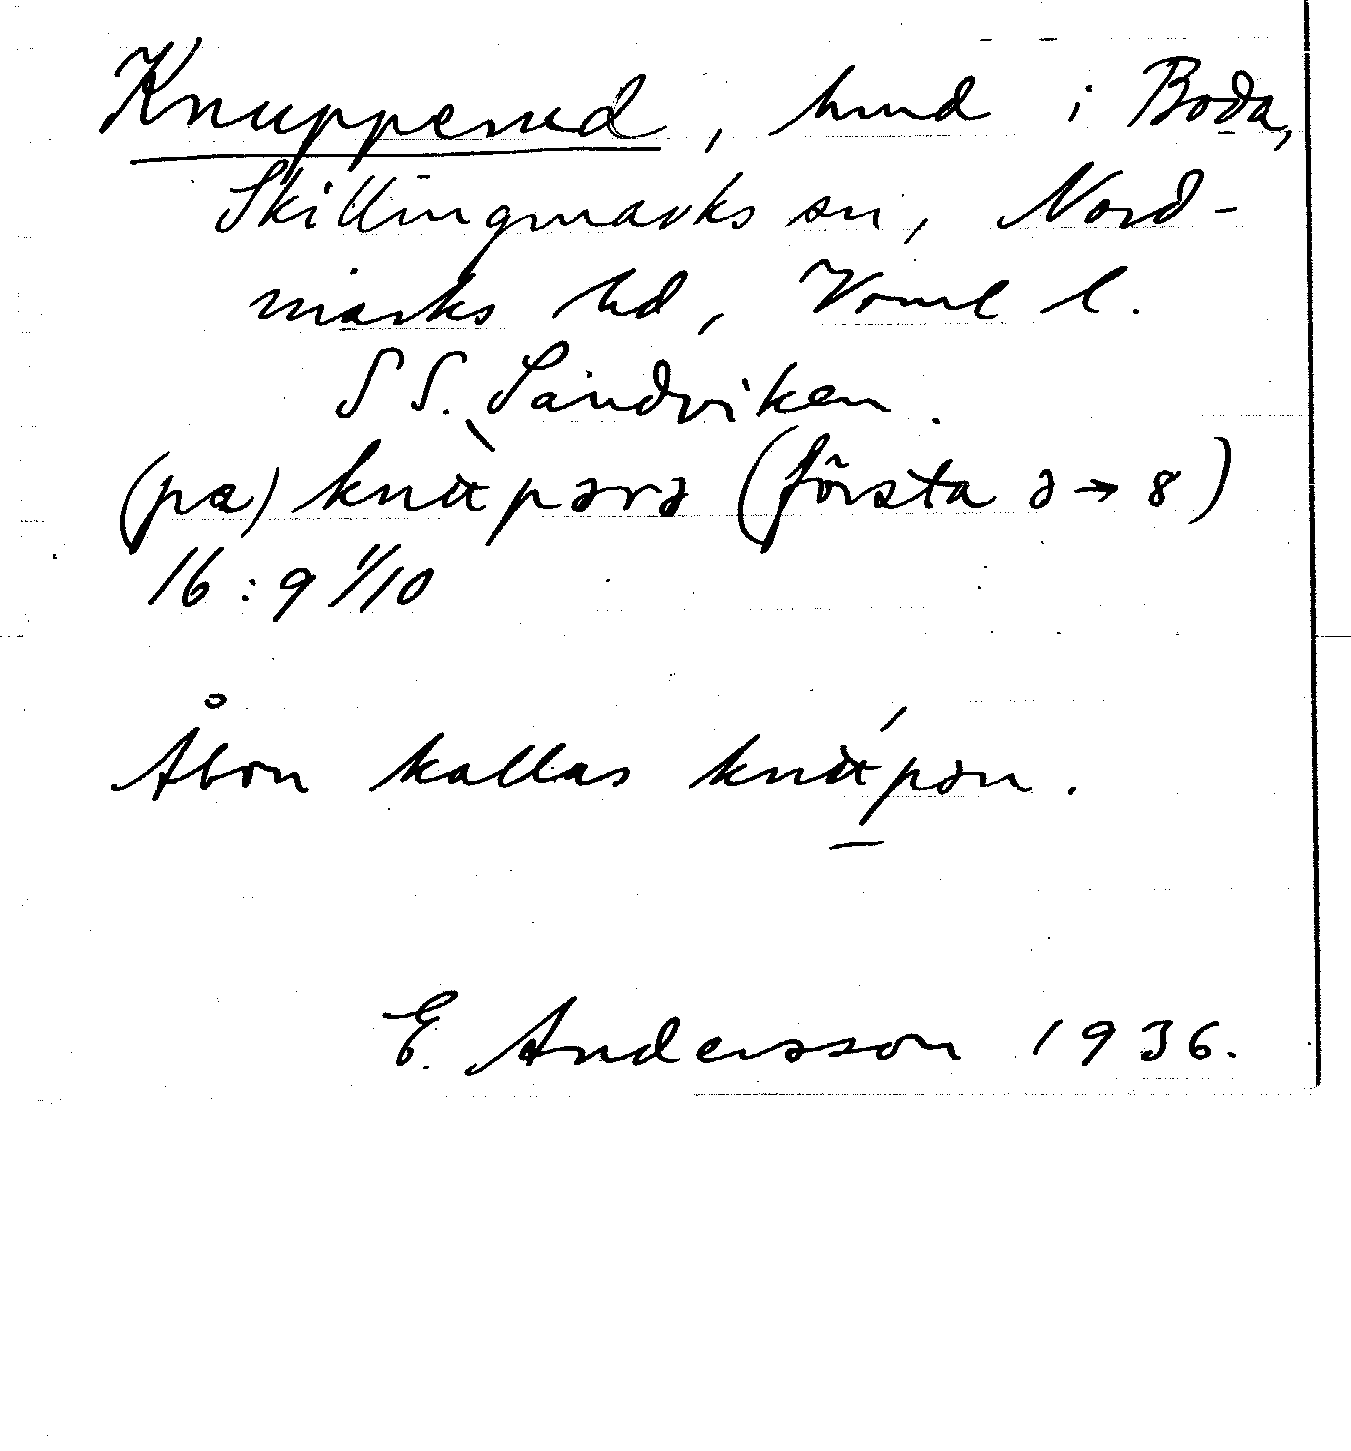 Knupperud, hmd i Boda,
Skillingmarks sn, Nord-
marks hd, Vrml l.
SS. Sandviken.
(pa) knùpərə (första ə → 8)
16:9 1/10
Åbon kallas knúpən.
E. Andersson 1936.